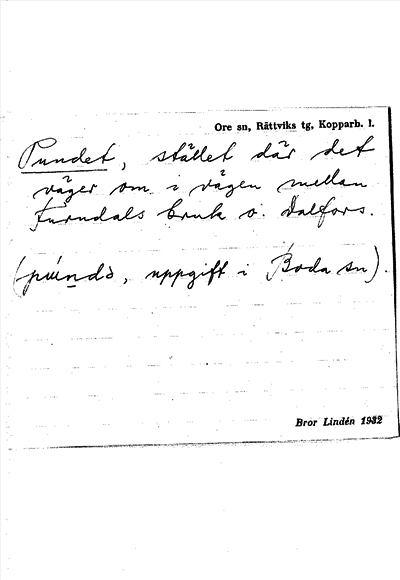 Ore sn, Rättviks tg, Kopparb. l.
Pundet, stället där det
väger om i vägen mellan
Furudals bruk o. Dalfors.
(púndə, uppgift i Boda sn).
Bror Lindén 1932